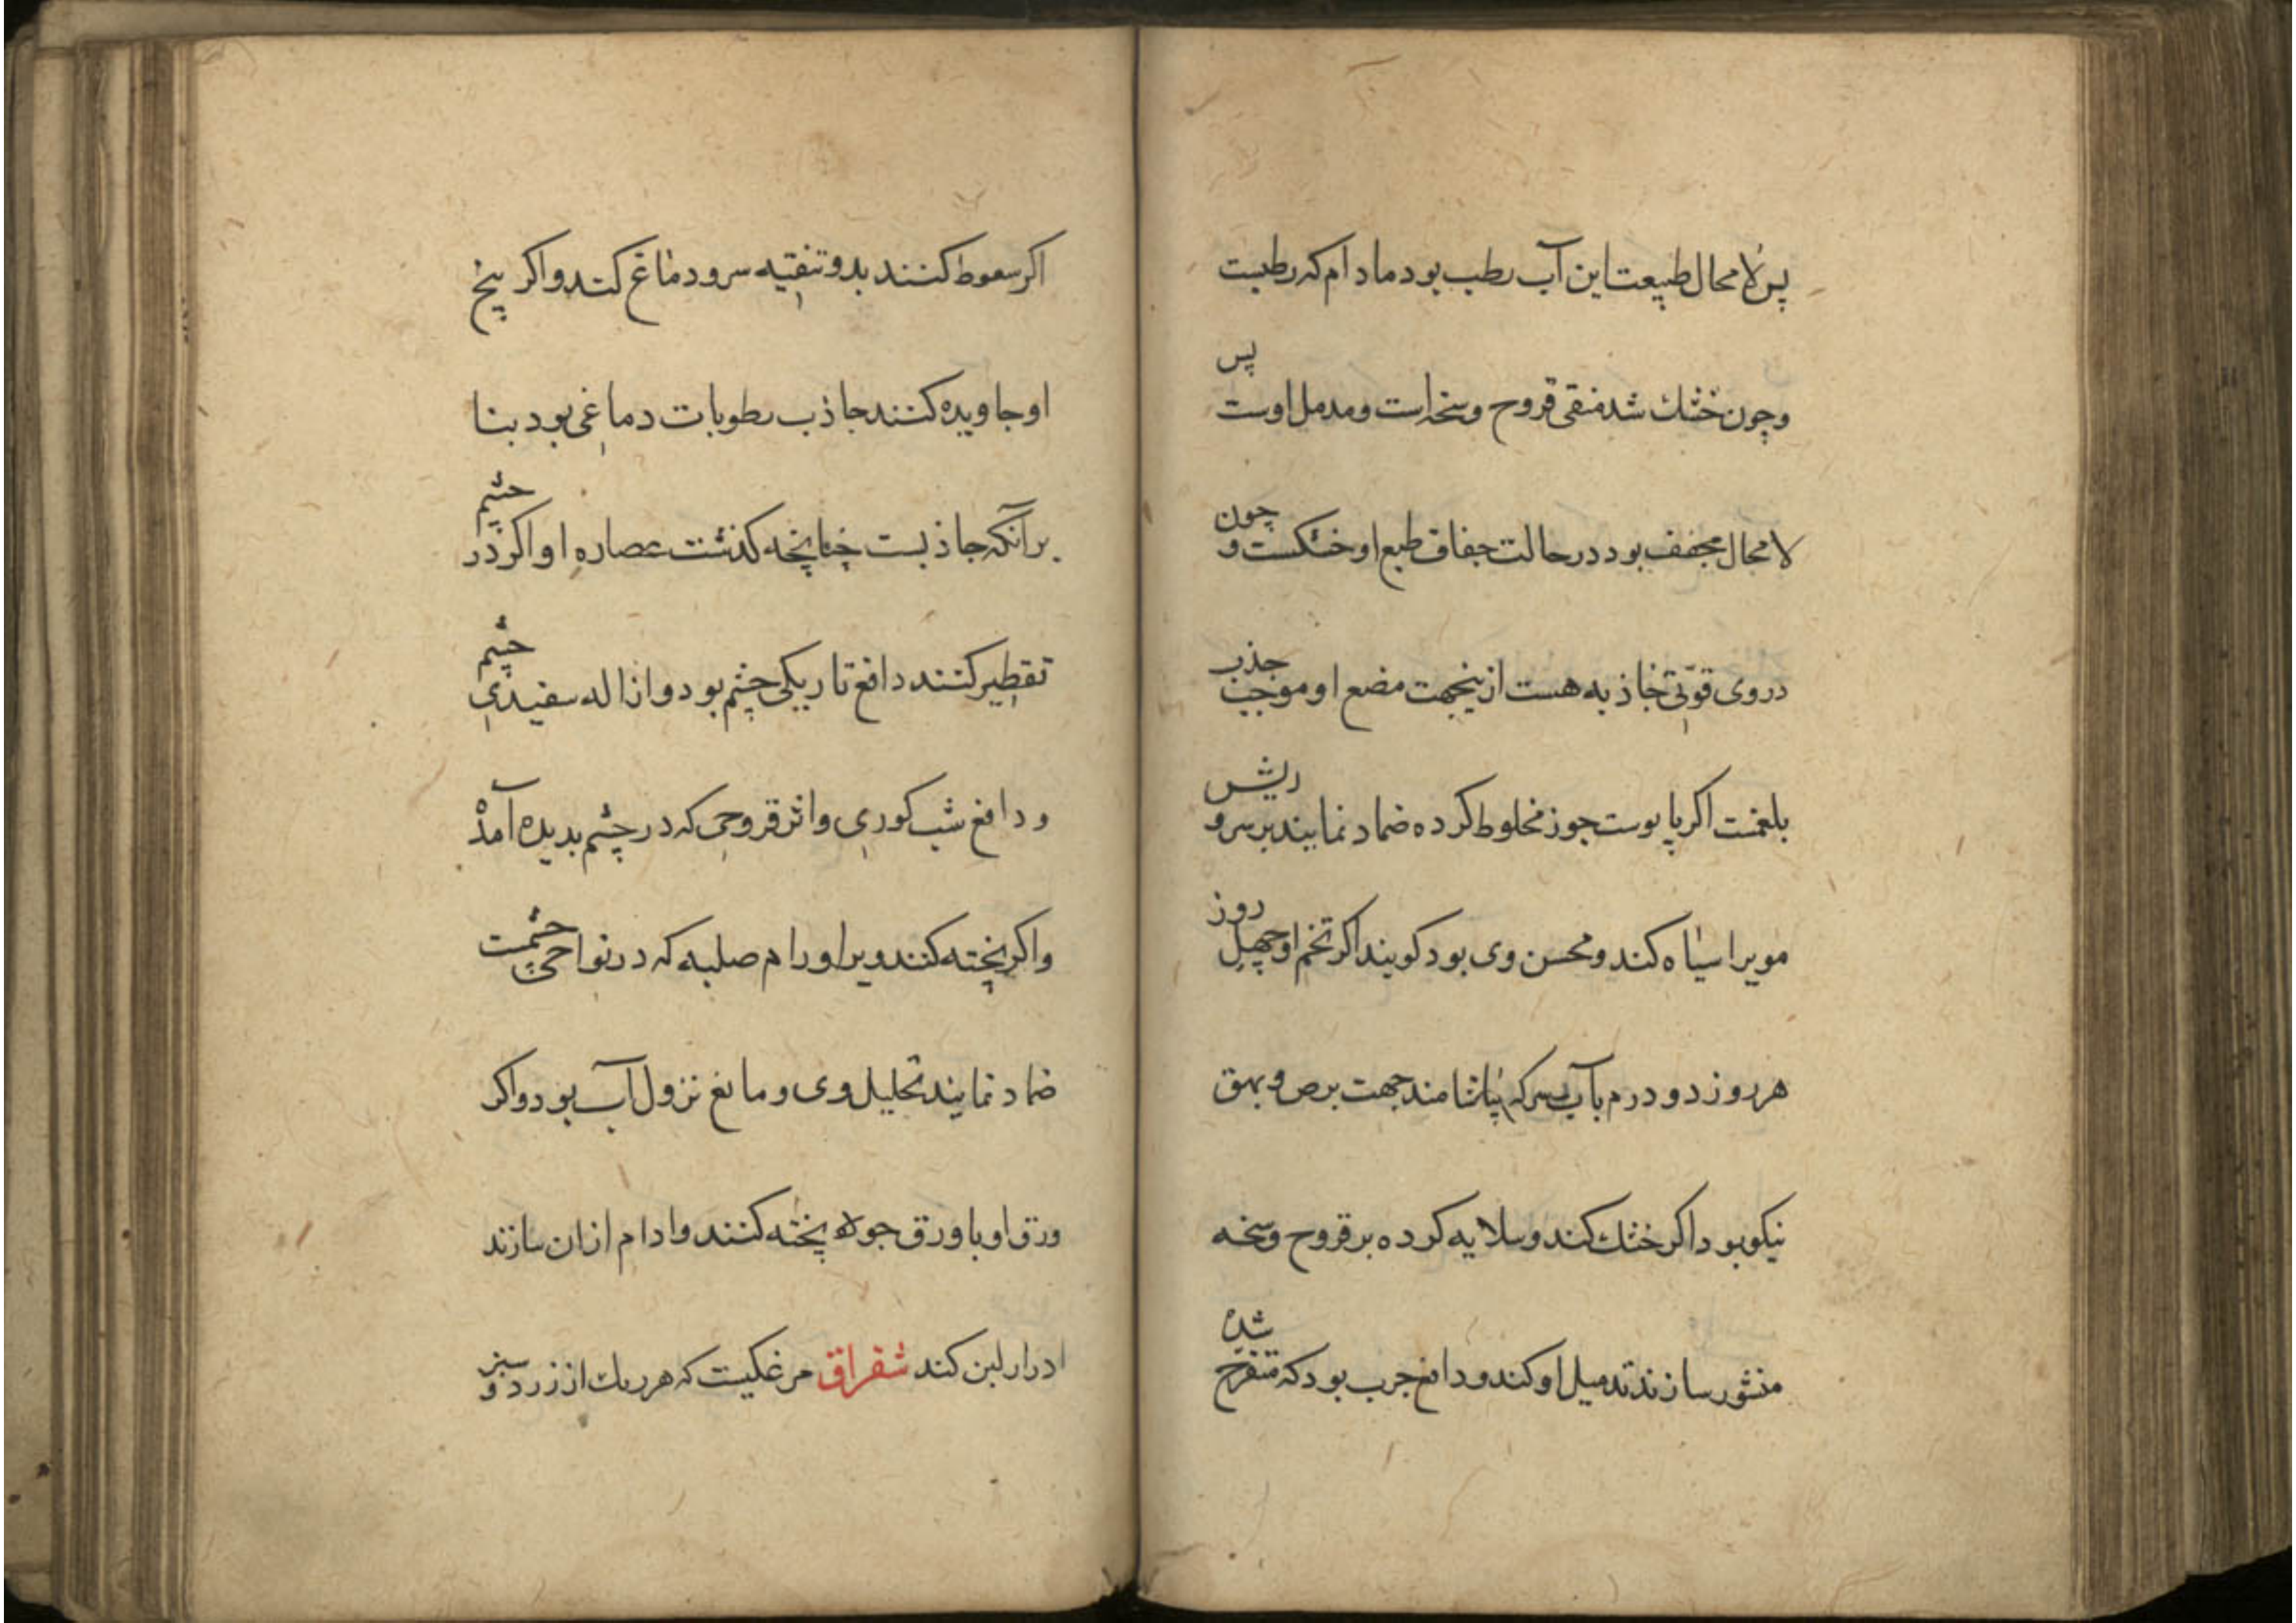 پس لامحال طبیعت این آب رطب بود مادام که رطبست
وچون خشك شد منقی قروح وسخه است ومدمل اوست پس
لامحال مجفف بود در حالت جفاف طبع او خشکست و چون
در وی قوّتی جاذبه هست ازینجهت مضع او موجب جذب
بلغمست اکر با پوست جوز مخلوط کرده ضماد نمایند بر سر و ریش
مویرا سیاه کند ومحسن وی بود کویند اکر تخم او چهل روز
هر روز دو درم با آب سرکه بیاشامند جهت برص و بهق
نیکو بود اکر خشك کند وسلایه کرده بر قروح وسخه
منثور سازند تدمیل او کند ودافع جرب بود که متقرح شده
اکر سعوط کنند بدو تنقیه سر ودماغ کند واکر بیخ
او جاویده کنند جاذب رطوبات دماغی بود بنا
بر آنکه جاذبست چنانچه کذشت عصاره او اکر در چشم
تقطیر کنند دافع تاریکی چشم بود وازاله سفیدی چشم
ودافع شب کوری واثر قروحی که در چشم بدیده آمده
واکر پخته کنند وبر اورام صلبه که در نواحی چشمست
ضماد نمایند تحلیل وی ومانع نزول آب بود واکر
ورق او با ورق جولاه پخته کنند وادام ازان سازند
ادرار لبن کند شقراق مرغکیست که هر یك از زرد و سبز